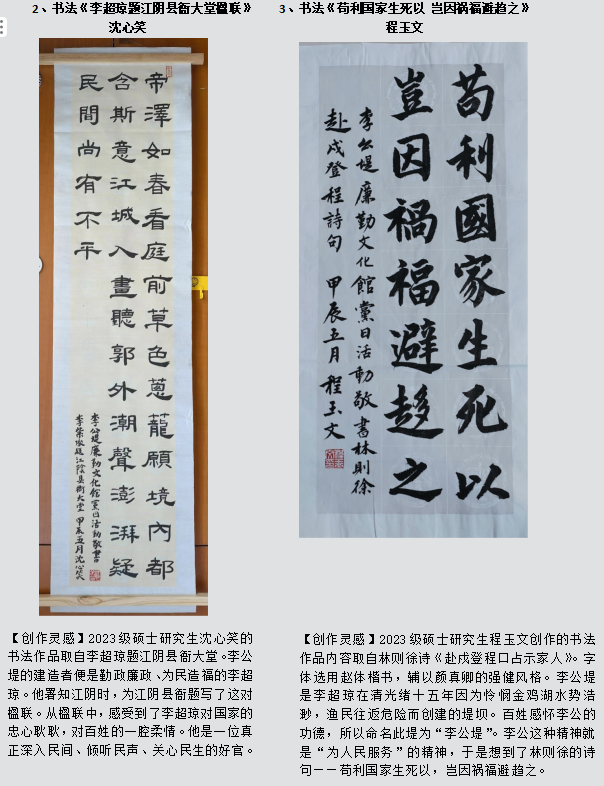 2、书法《李超琼题江阴县衙大堂楹联》
沈心笑
帝澤如春看庭前草色蔥蘢願境內都
含斯意江城入畫聽郭外潮聲澎湃疑
民間尚有不平
李公堤廉勤文化館黨日活動敬書
江陰县衙大堂 甲辰五月沈心笑
【创作灵感】2023级硕士研究生沈心笑的
书法作品取自李超琼题江阴县衙大堂。李公
堤的建造者便是勤政廉政、为民造福的李超
琼。他署知江阴时，为江阴县衙题写了这对
楹联。从楹联中，感受到了李超琼对国家的
忠心耿耿，对百姓的一腔柔情。他是一位真
正深入民间、倾听民声、关心民生的好官。
3、书法《苟利国家生死以 岂因祸福避趋之》
程玉文
苟利國家生死以
豈因禍福避趍之
李公堤廉勤文化館黨日活動敬書林則徐
赴戍登程詩句 甲辰五月 程玉文
【创作灵感】2023级硕士研究生程玉文创作的书法
作品内容取自林则徐诗《赴戍登程口占示家人》。字
体选用赵体楷书，辅以颜真卿的强健风格。李公堤
是李超琼在清光绪十五年因为怜悯金鸡湖水势浩
渺，渔民往返危险而创建的堤坝。百姓感怀李公的
功德，所以命名此堤为“李公堤”。李公这种精神就
是“为人民服务”的精神，于是想到了林则徐的诗
句——苟利国家生死以，岂因祸福避趋之。